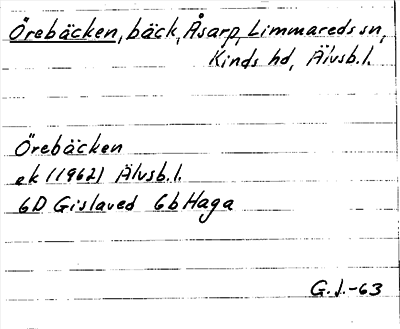 Örebäcken, bäck, Åsarp, Limmareds sn,
Kinds hd, Älvsb.l.
Örebäcken
ek (1962) Älvsb.l.
6D Gislaved 6b Haga
G.J.-63